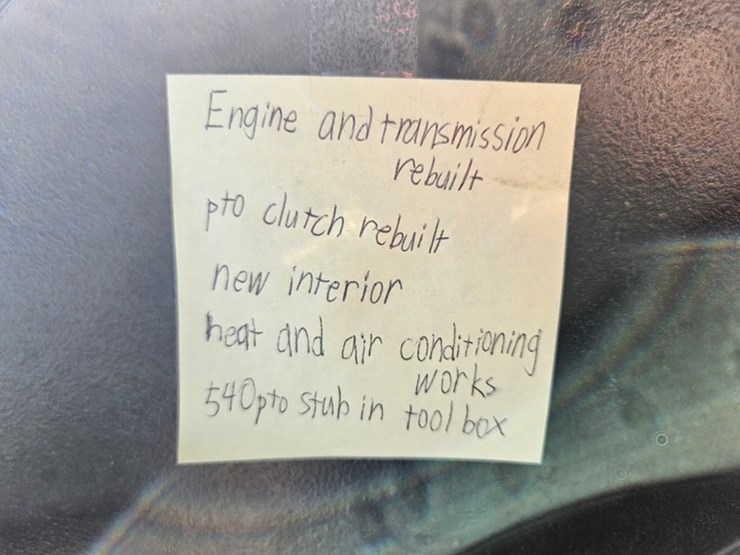 Engine and transmission
rebuilt
pto clutch rebuilt
new interior
heat and air conditioning
works
540pto stub in tool box